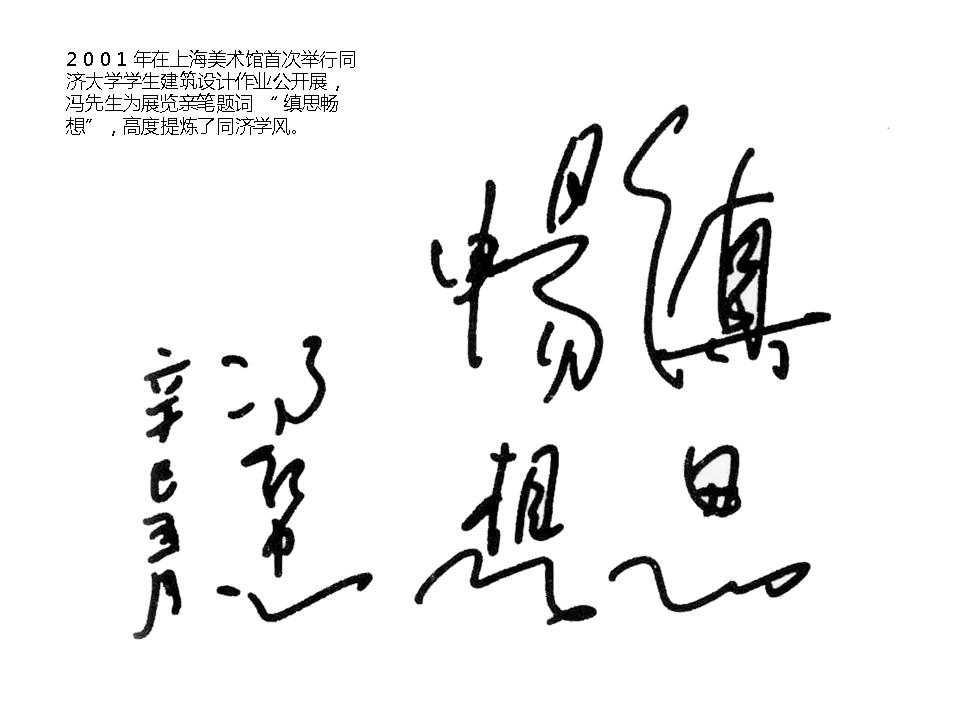 2001年在上海美术馆首次举行同
济大学学生建筑设计作业公开展，
冯先生为展览亲笔题词 “ 缜思畅
想” ，高度提炼了同济学风。
缜思
暢想
冯纪忠
辛巳五月